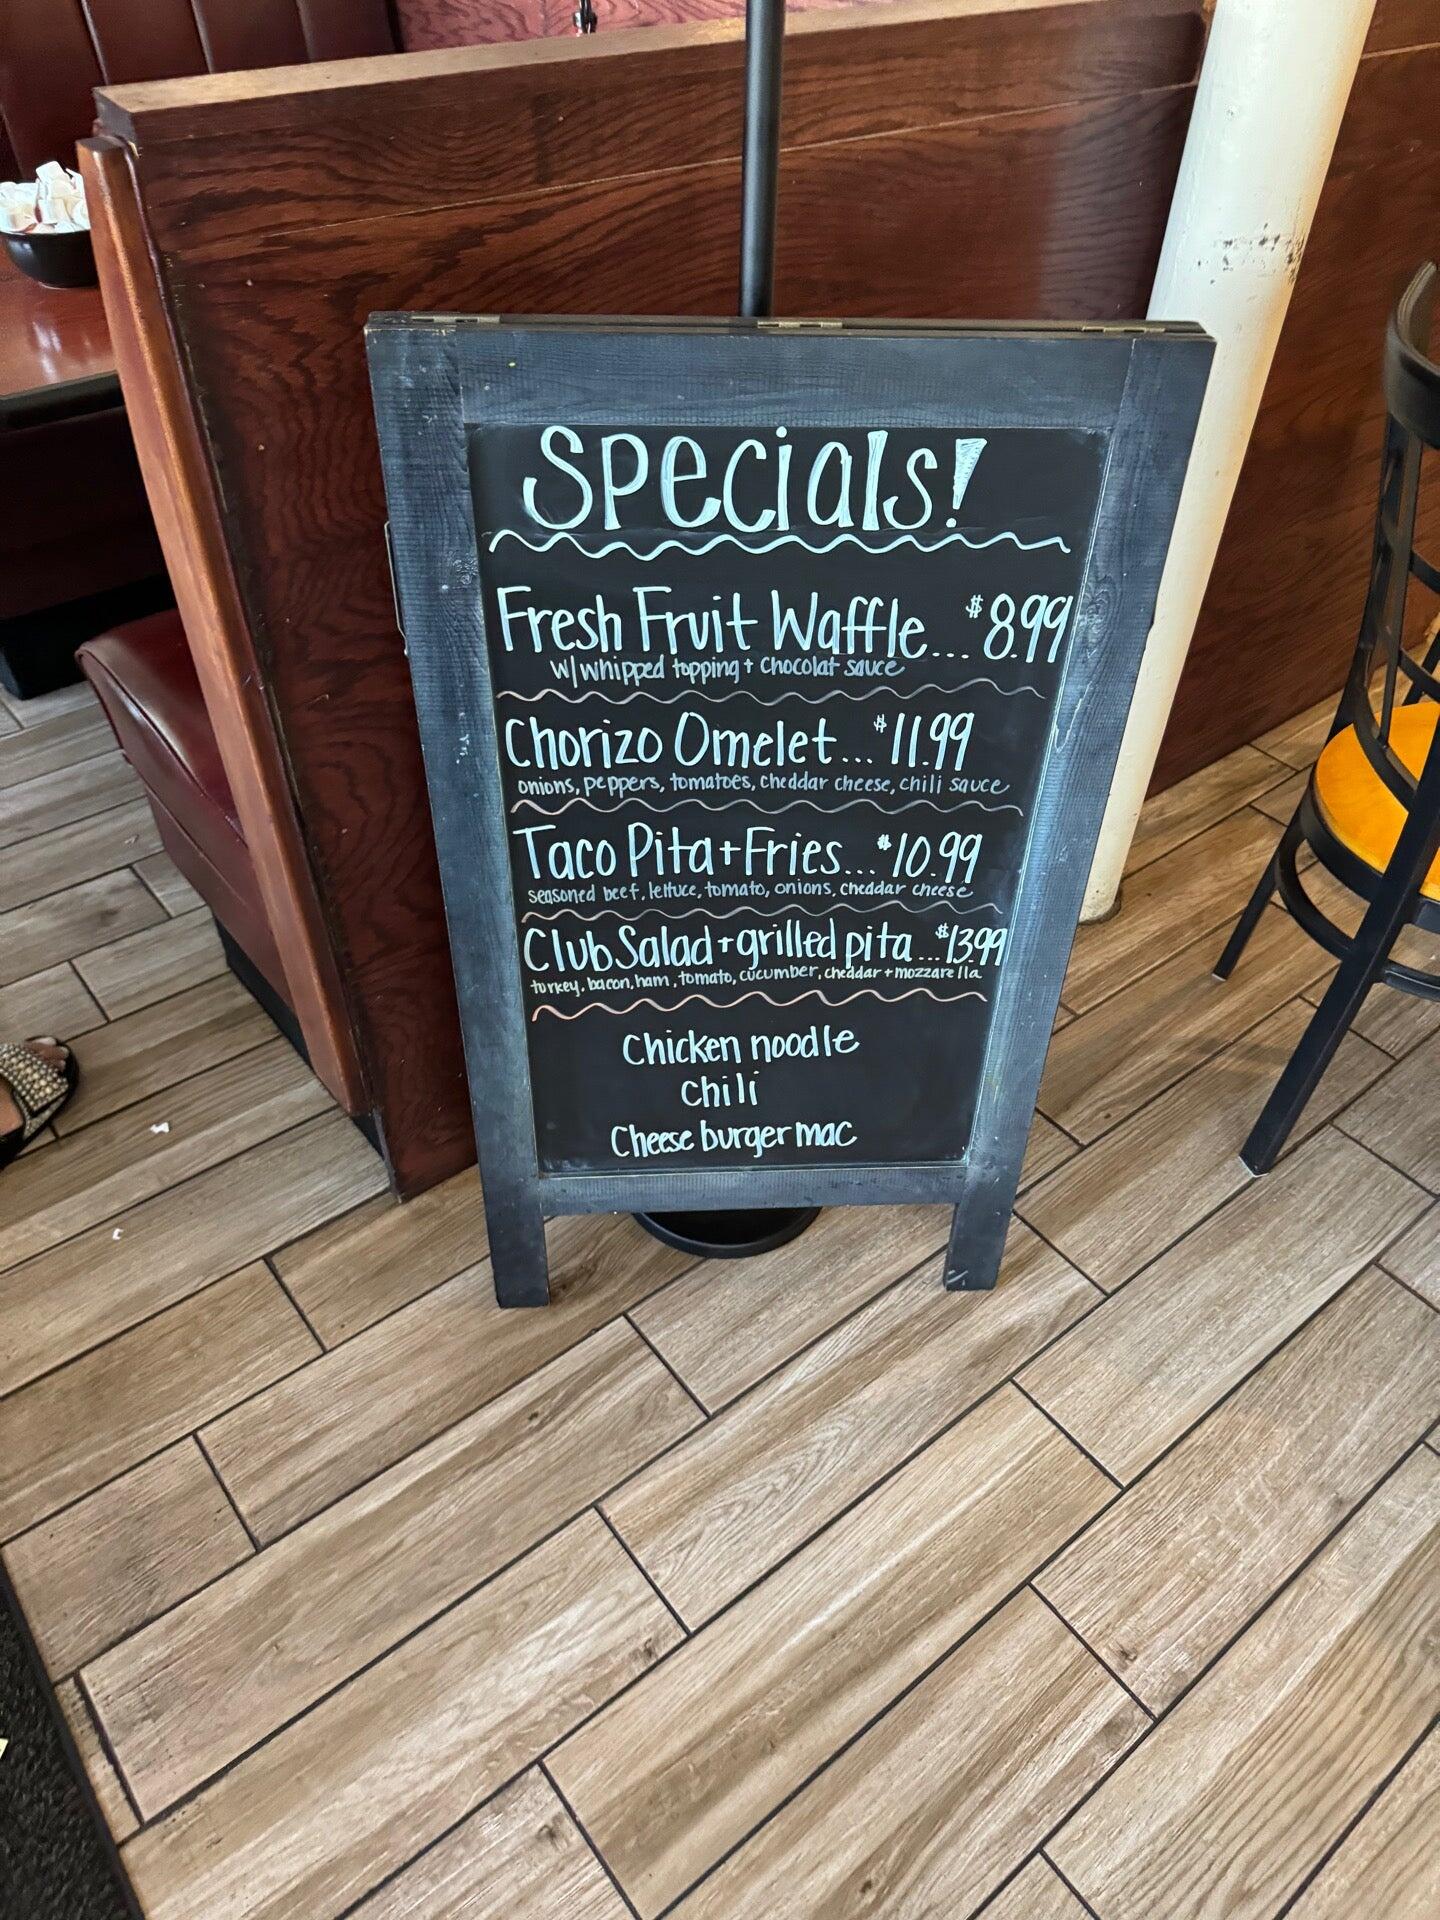 Specials!
Fresh Fruit Waffle... $8.99
w/whipped topping + Chocolat sauce
Chorizo Omelet... $11.99
onions, peppers, tomatoes, cheddar cheese, chili sauce
Taco Pita + Fries... $10.99
seasoned beef, lettuce, tomato, onions, cheddar cheese
Club Salad + grilled pita ... $13.99
turkey, bacon, ham, tomato, cucumber, cheddar + mozzarella
Chicken noodle
Chili
Cheese burger mac